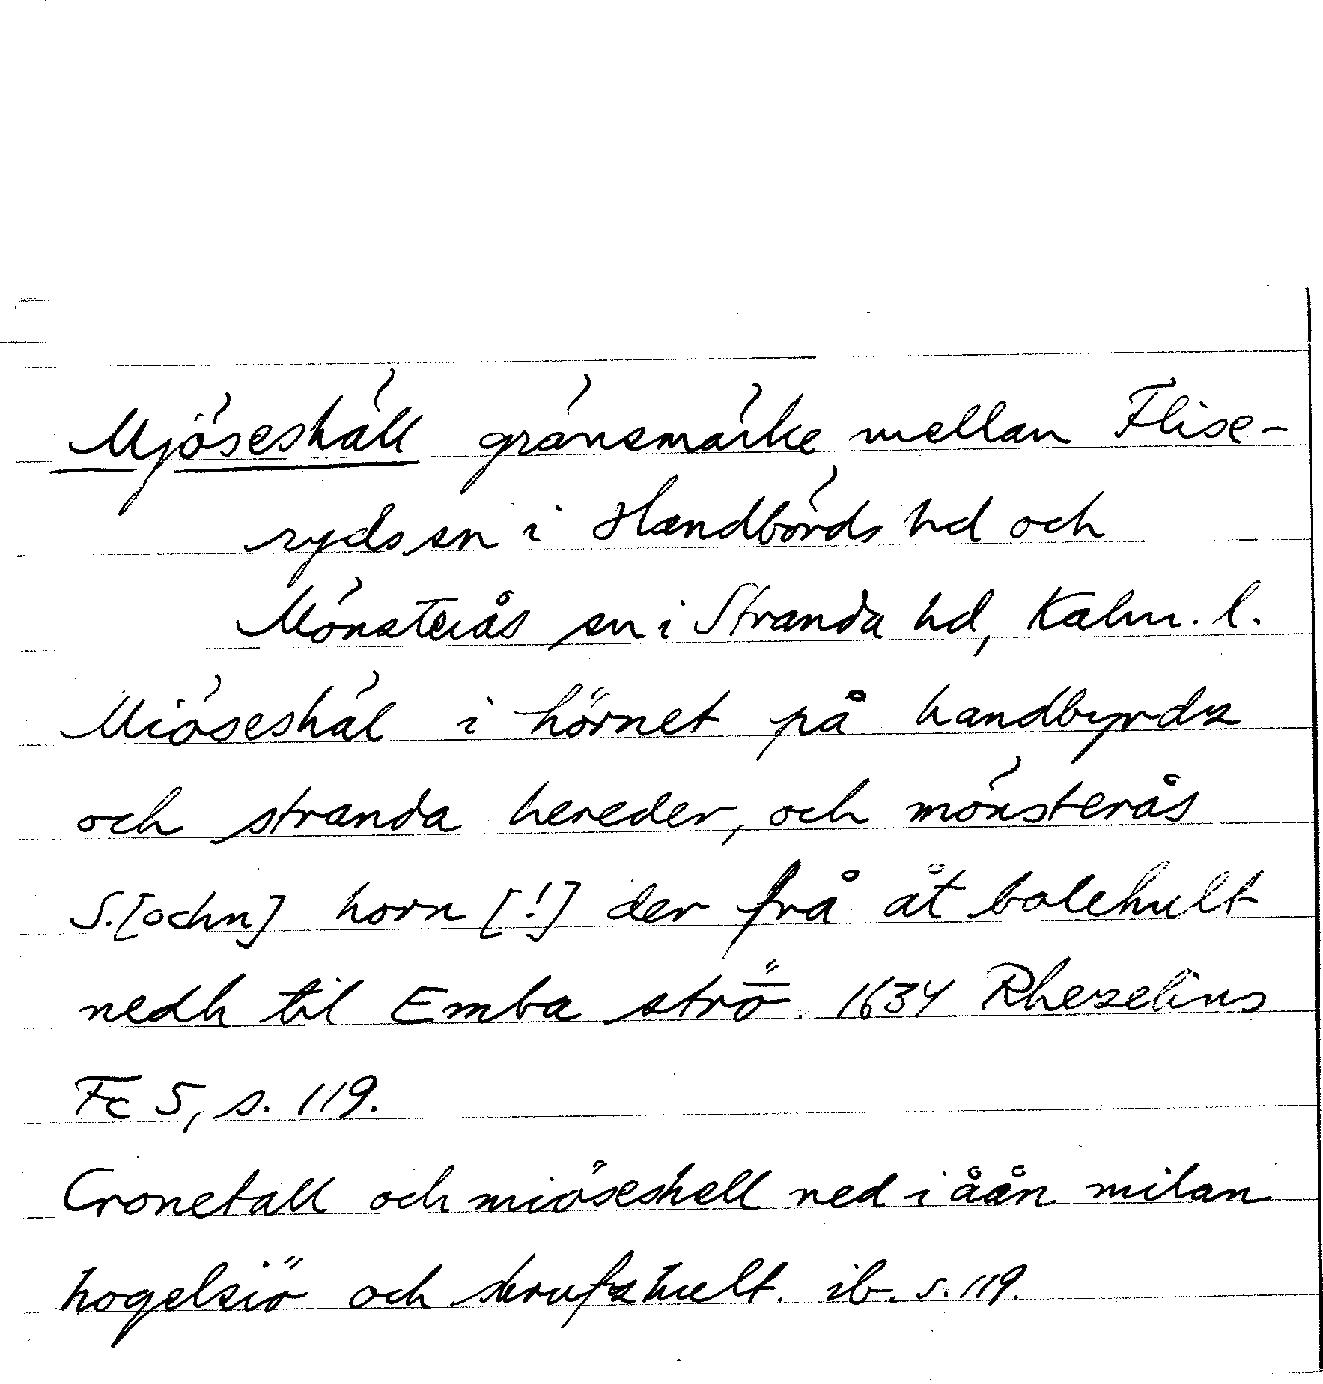 Mjöseshäll gränsmärke mellan Flise-
ryds sn i Handbörds hd och
Mönsterås sn i Stranda hd, Kalm. l.
Miöseshäl i hörnet på handbyrdz
och stranda hereder, och mönsterås
S.[ochn] horn [!] der frå åt bolehult
nedh til Emba strö̅. 1634 Rhezelius
Fc 5, s. 119.
Cronetall och miöseshell ned i åån milan
hogelsiö och skrufzhult. ib. s. 119.